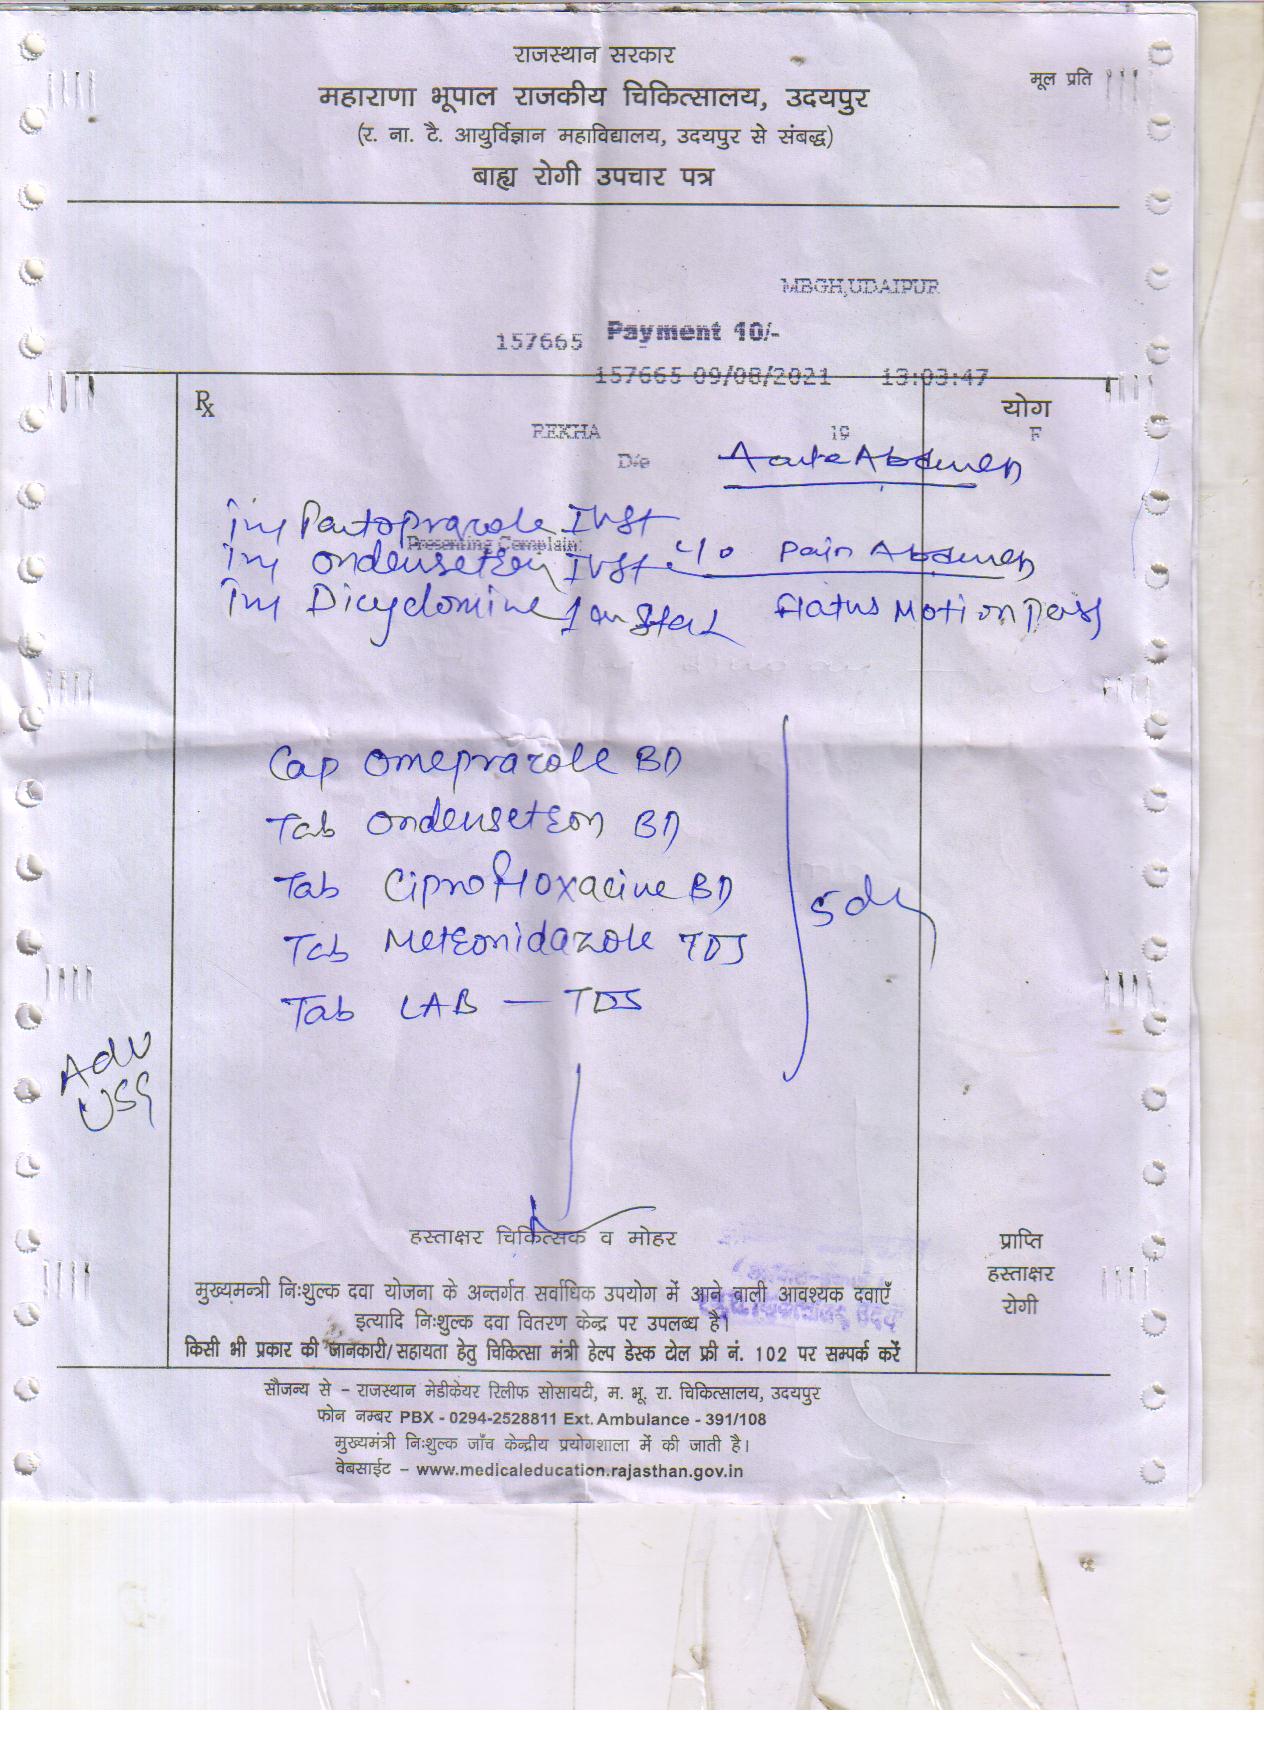 राजस्थान सरकार
मूल प्रति
महाराणा भूपाल राजकीय चिकित्सालय, उदयपुर
(र. ना. टै. आयुर्विज्ञान महाविद्यालय, उदयपुर से संबद्ध)
बाह्य रोगी उपचार पत्र
MBGH,UDAIPUR
157665 Payment 10/-
157665 09/08/2021 13:03:47
Rx
योग
REKHA 19 F
D/o
Acute Abdomen
Inj Pantoprazole IV St
Presenting Complain:
Inj Ondensetron IV St. c/o Pain Abdomen
Inj Dicyclomine Im Stat Flatus Motion Pass
Cap Omeprazole BD
Tab Ondensetron BD
Tab Ciprofloxacine BD
5 day
Tab Metronidazole TDS
Tab LAB - TDS
Adv
USG
हस्ताक्षर चिकित्सक व मोहर
प्राप्ति
हस्ताक्षर
रोगी
मुख्यमन्त्री निःशुल्क दवा योजना के अन्तर्गत सर्वाधिक उपयोग में आने वाली आवश्यक दवाएँ
इत्यादि निःशुल्क दवा वितरण केन्द्र पर उपलब्ध है।
किसी भी प्रकार की जानकारी/सहायता हेतु चिकित्सा मंत्री हेल्प डेस्क टोल फ्री नं. 102 पर सम्पर्क करें
सौजन्य से – राजस्थान मेडीकेयर रिलीफ सोसायटी, म. भू. रा. चिकित्सालय, उदयपुर
फोन नम्बर PBX - 0294-2528811 Ext. Ambulance - 391/108
मुख्यमंत्री निःशुल्क जाँच केन्द्रीय प्रयोगशाला में की जाती है।
वेबसाईट – www.medicaleducation.rajasthan.gov.in